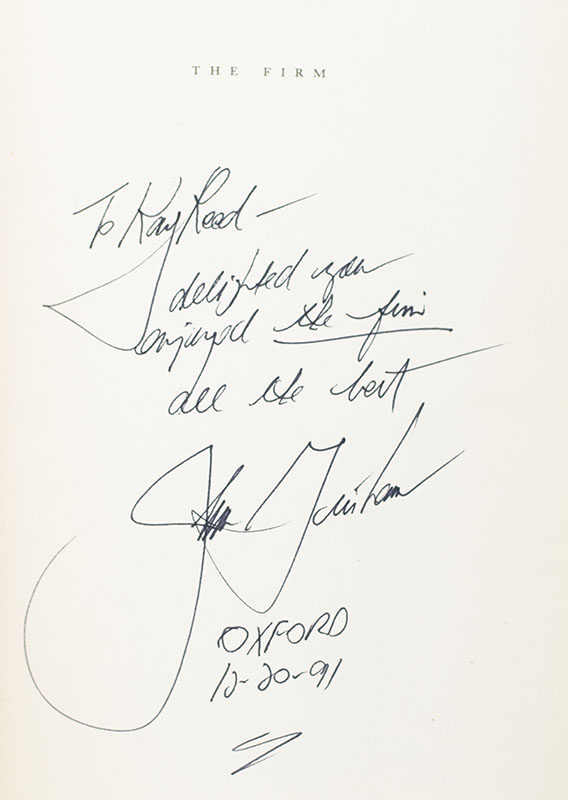 THE FIRM
To Kay Reed —
delighted you
enjoyed the firm
all the best
John Grisham
OXFORD
12-20-91